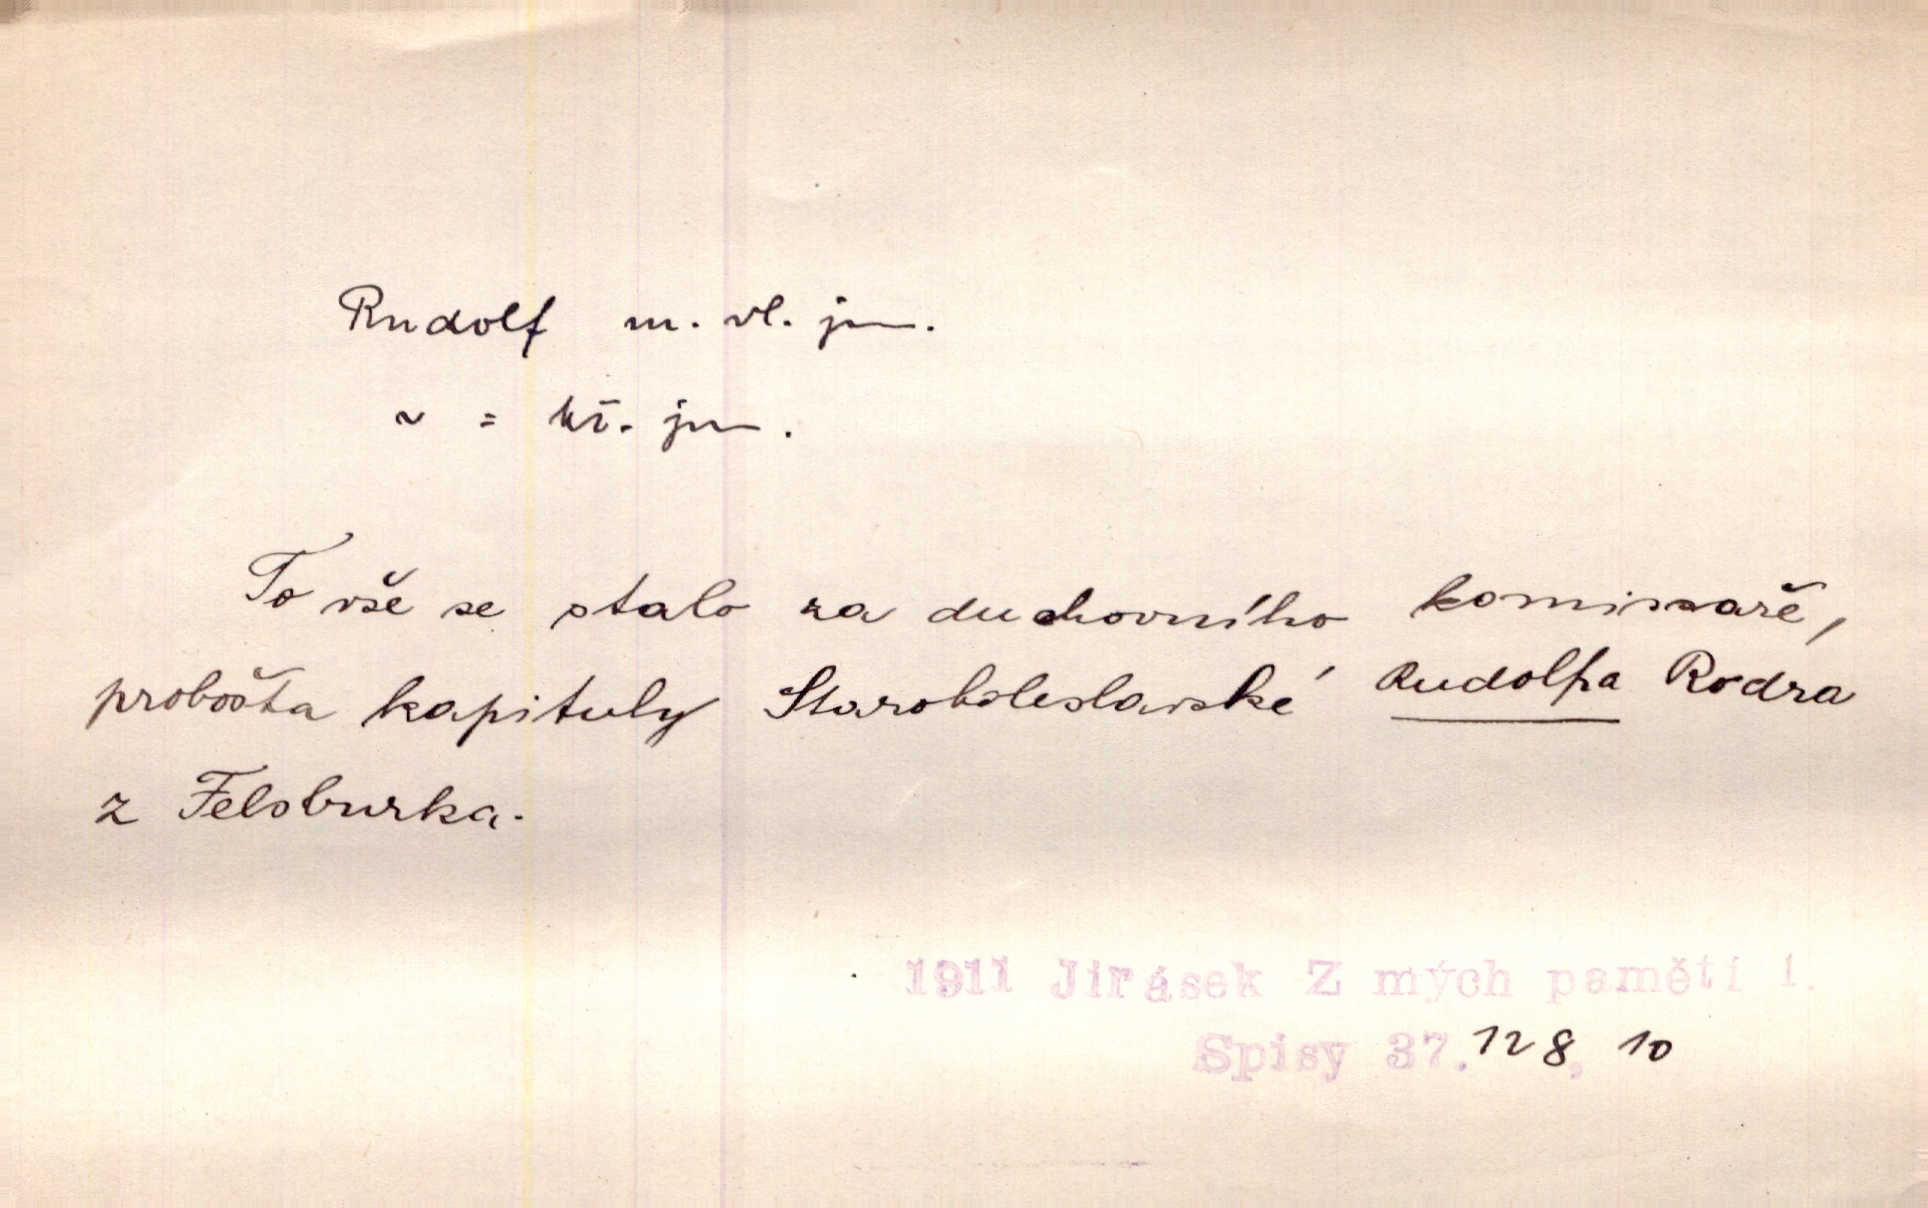 Rudolf m. vl. jm.
~ = kř. jm.
To vše se stalo za duchovního komissaře,
probošta kapituly Staroboleslavské Rudolfa Rodra
z Felsburka.
1911 Jirásek Z mých pamětí 1.
Spisy 37. 128, 10